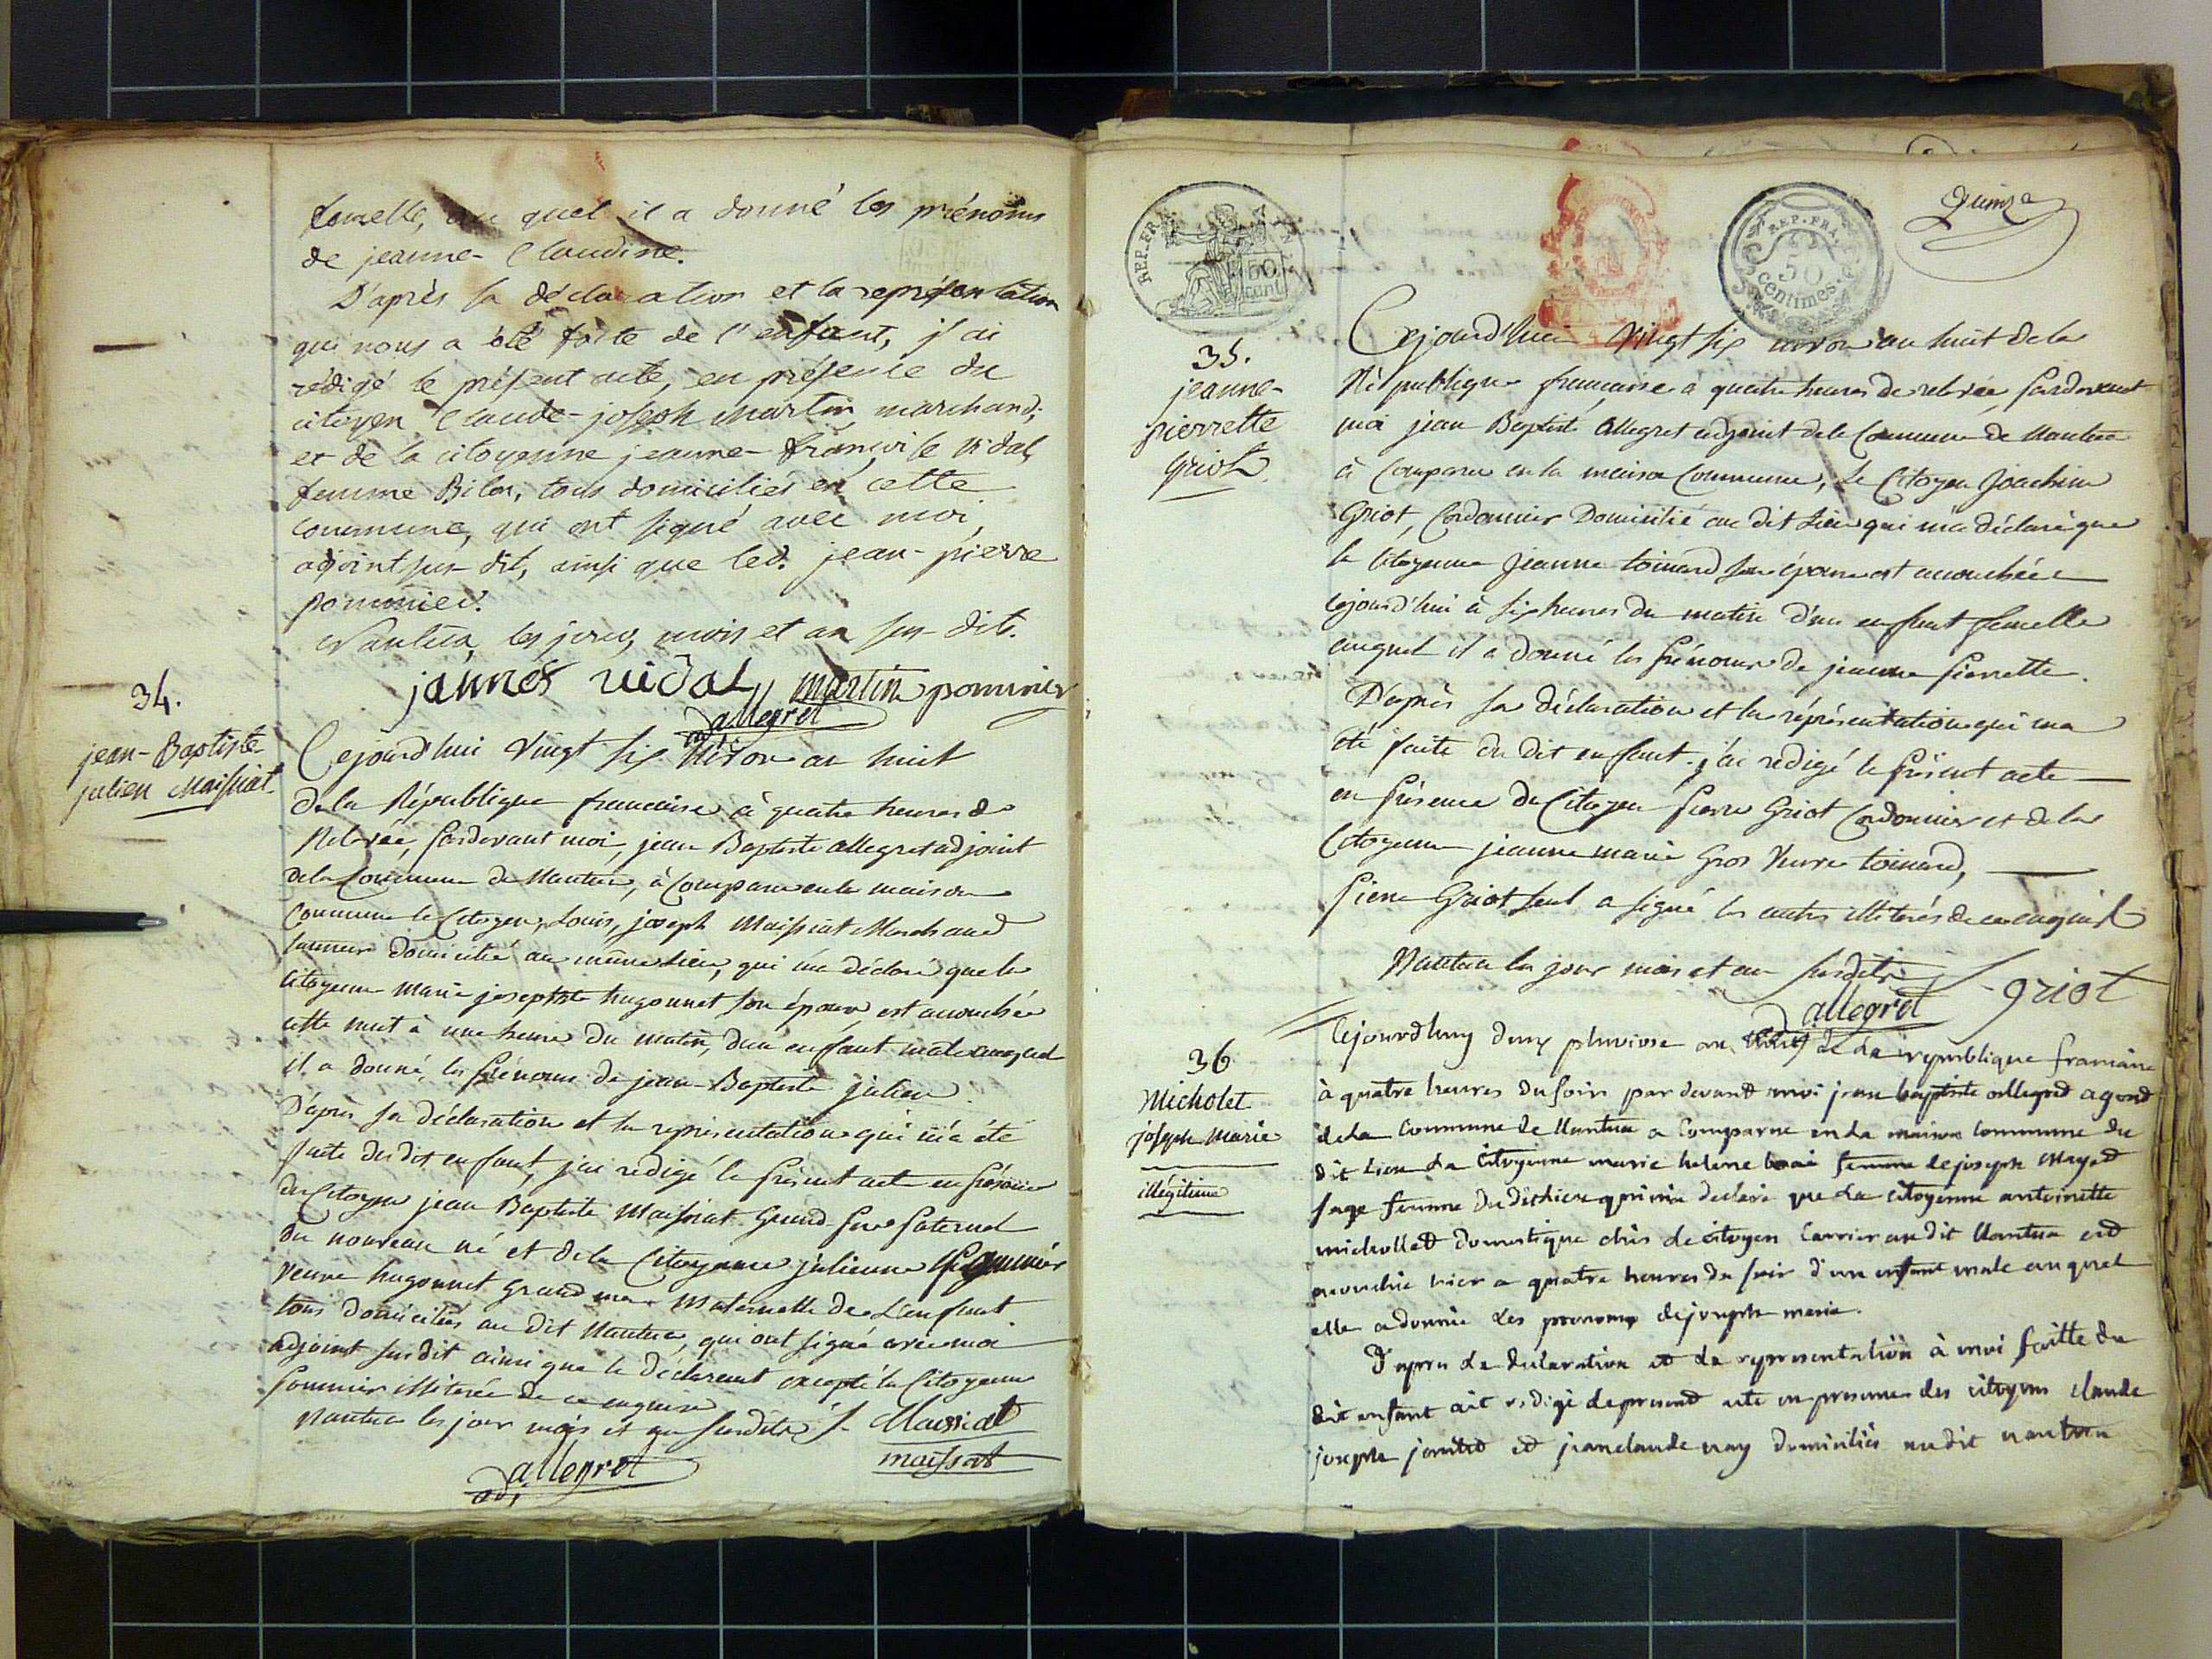 femelle, au quel il a donné les prénoms
de jeanne-Claudine.
D'après sa déclaration et la représentation
qui nous a été faite de l'enfant, j'ai
rédigé le présent acte, en présence du
citoyen Claude-joseph Martin, marchand;
et de la citoyenne jeanne-françoise vidal,
femme Bilon, tous domiciliés en cette
commune, qui ont signé avec moi,
adjoint sus-dit, ainsi que led. jean-pierre
pommier.
Nantua, les jour, mois et an sus-dits.
vidal martin pommier
allegret
adj
34.
jean-Baptiste
julien Maissiat
Cejourd'hui vingt six Nivose an huit
de la République francaise à quatre heures de
Relevée, pardevant moi, jean Baptiste allegret adjoint
de la Commune de Nantua, à Comparu en la maison
Commune le Citoyen, Louis, joseph Maissiat Marchand
tanneur domicilié au même Lieu, qui m'a déclaré que la
Citoyenne marie josephte hugonnet son épouse, est accouchée
cette nuit à une heure du matin, d'un enfant male auquel
il a donné, les prénoms de jean-Baptiste julien.
D'après sa déclaration et la représentation qui m'a été
faite du dit enfant, j'ai redigé le présent acte en présence
du Citoyen jean Baptiste Maissiat Grand-Pere paternel
du nouveau né et de la Citoyenne julienne
veuve hugonnet grand mere Maternelle de L'enfant
tous domiciliés au dit Nantua, qui ont signé avec moi
adjoint susdit ainsi que le déclarant excepté la Citoyenne
Pommier illiterée de ce enquise
Nantua les jour mois et an susdits J. Maissiat
maissiat
allegret
adj
REP. FRA
50
cent
REP. FRA.
50
centimes.
Quinze
35.
jeanne-
pierrette
Griot
Cejourd'hui vingt six nivose an huit de la
République francaise a quatre heures de relevée, pardevant
moi jean Baptiste Allegret adjoint de la Commune de Nantua
à Comparu en la maison Commune, le Citoyen Joachim
Griot, Cordonnier Domicilié au dit Lieu qui m'a déclaré que
la Citoyenne Jeanne toinard son épouse est accouchée
cejourd'hui à six heures du matin d'un enfant femelle
auquel il a donné les prénoms de jeanne pierrette.
D'après sa déclaration et la représentation qui m'a
été faite du dit enfant. j'ai redigé le présent acte
en présence du Citoyen Pierre Griot Cordonnier et de la
Citoyenne jeanne marie Gros veuve toinard,
Pierre Griot seul a signé les autres illiterés de ce enquis
Nantua les jour mois et an susdits
griot
allegret
36
Micholet
joseph Marie
illégitime
Cejourdhuy deux pluviose an huit de la republique francaise
à quatre heures du soir par devant moi jean baptiste allegret agent
de la commune de Nantua a Comparue en la maison Commune du
dit Lieu La Citoyenne marie helene femme de joseph
sage femme du dit lieu qui m'a declaré que La Citoyenne antoinette
michollet domestique chés le citoyen Carrier au dit Nantua est
accouchée hier a quatre heures du soir d'un enfant male auquel
elle a donnée Les prenoms de joseph marie.
D'apres La declaration et La representation à moi faitte du
dit enfant ait redigé le present acte en presence des citoyens Claude
joseph et jean claude domiciliés au dit nantua